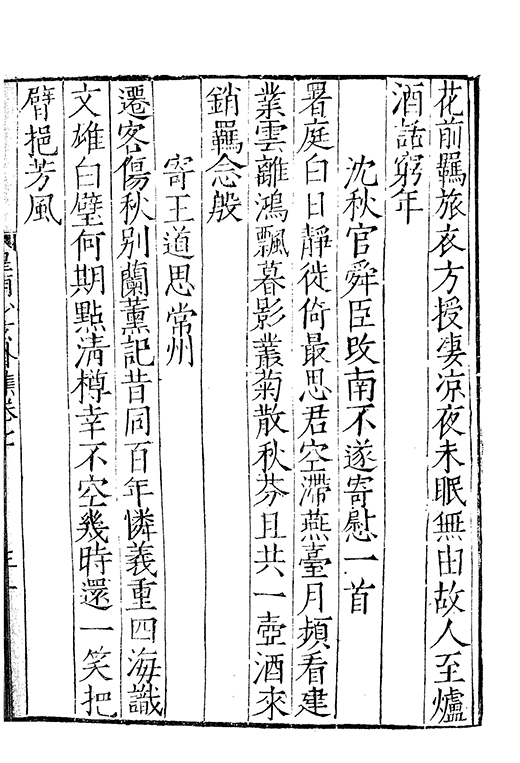 花前羈旅衣方授淒凉夜未眠無由故人至爐
酒話窮年
沈秋官舜臣改南不遂寄慰一首
署庭白日靜徙倚最思君空滯燕臺月頻看建
業雲離鴻飄暮影叢菊散秋芬且共一壺酒來
銷羈念殷
寄王道思常州
遷客傷秋别蘭薰記昔同百年憐義重四海識
文雄白璧何期點清樽幸不空幾時還一笑把
臂挹芳風